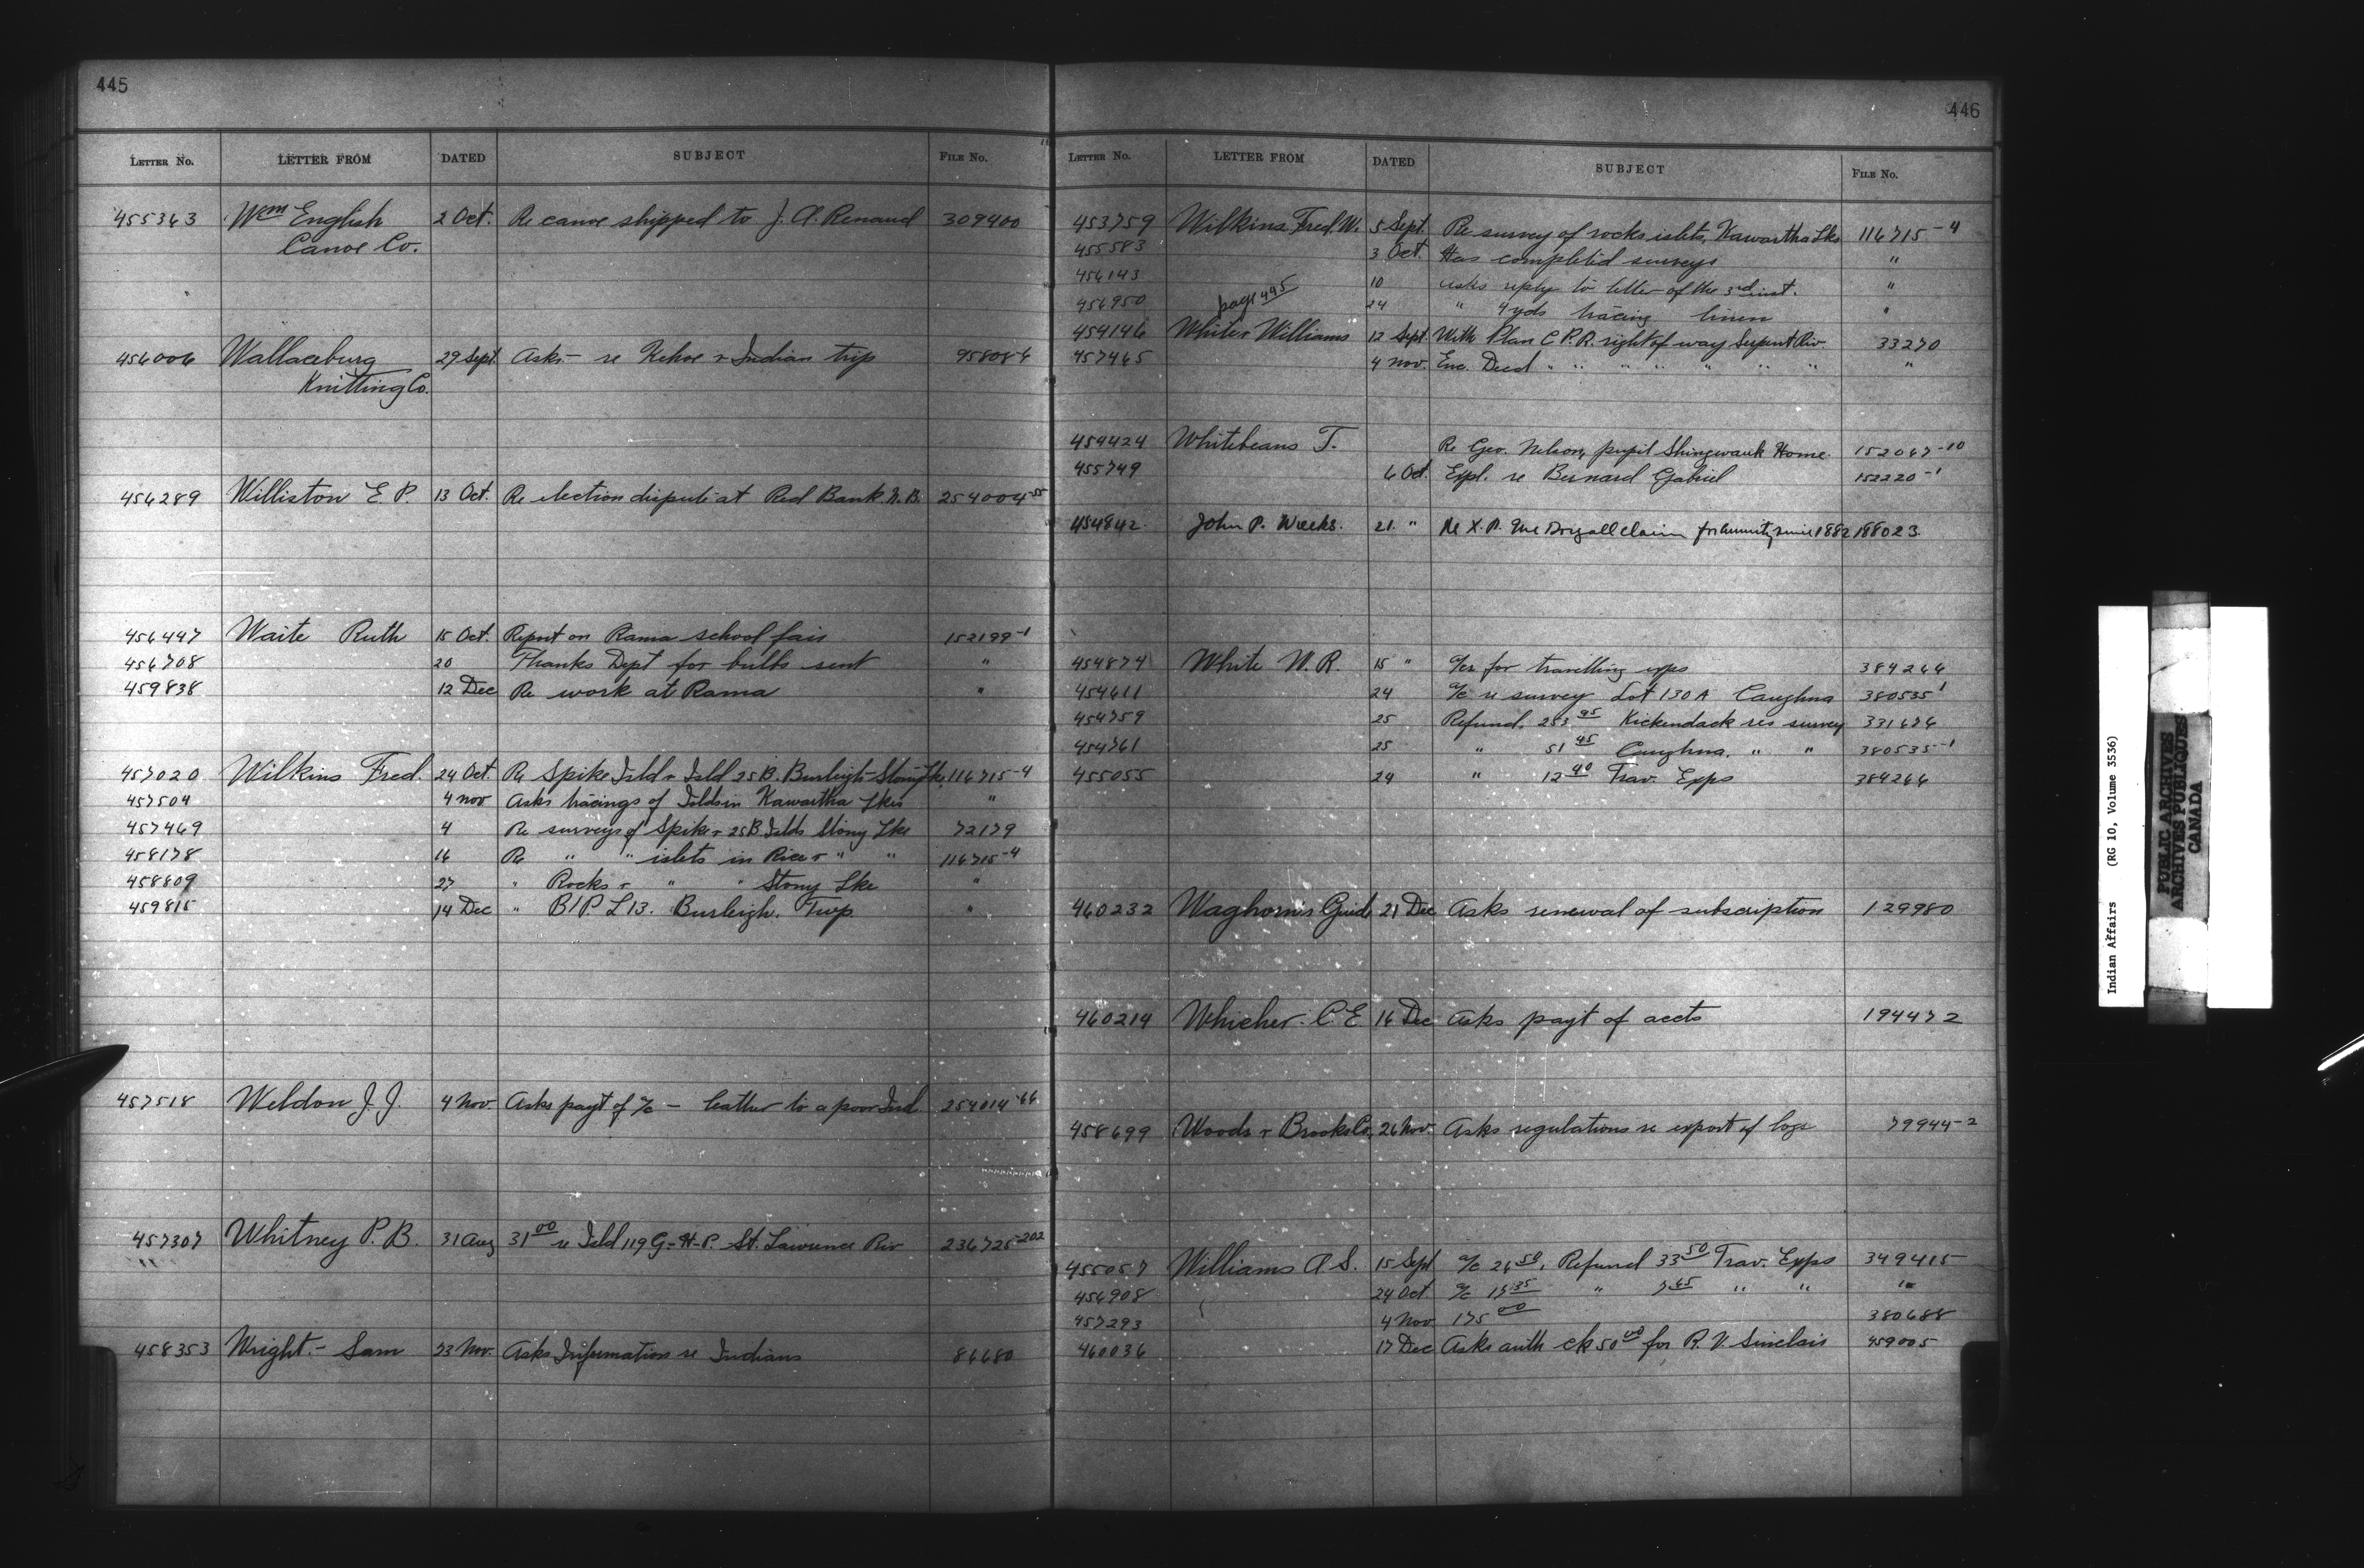 445
LETTER No. LETTER FROM DATED SUBJECT FILE No.
455363 Wm English 2 Oct. Re canoe shipped to J. A. Renaud 309400
Canoe Co.
456006 Wallaceburg 29 Sept. Asks - re Kehoe & Indian trip 95808-6
Knitting Co.
456289 Williston E P. 13 Oct. Re election dispute at Red Bank N. B. 254004-55
456497 Waite Ruth 15 Oct. Report on Rama school fair 152199-1
456708 20 Thanks Dept for bulbs sent "
459838 12 Dec Re work at Rama "
457020 Wilkins Fred. 24 Oct. Re Spike Isld & Isld 25 B. Burleigh - Stony Lke 116715-4
457504 4 Nov Asks tracings of Islds in Kawartha Lkes "
457469 4 Re surveys of Spike & 25 B. Islds Stony Lke 72179
458178 16 Re " " islets in Rice & " " 116715-4
458809 27 " Rocks & " " Stony Lke "
459815 14 Dec " B/P. L 13. Burleigh. Twp "
457518 Weldon J. J. 4 Nov. Asks payt of a/c - leather to a poor Ind 254014-66
457307 Whitney P. B. 31 Aug 31 00 re Isld 119 G - H - P. St. Lawrence Riv 236725-202
458353 Wright. - Sam 23 Nov. Asks Information re Indians 86680
446
LETTER No. LETTER FROM DATED SUBJECT FILE No.
453759 Wilkins Fred. W. 5 Sept. Re survey of rocks islets, Kawartha Lks 116715-4
455583 3 Oct. Has completed surveys "
456143 10 asks reply to letter of the 3rd inst. "
456950 page 445 24 " 4 yds tracing linen "
454146 White & Williams 12 Sept With Plan C. P. R. right of way Serpent Riv. 33270
457465 4 Nov. Enc. Deed " " " " " " " "
454424 Whitebeans T. Re Geo. Nelson, pupil Shingwauk Home. 152067-10
455749 6 Oct. Expl. re Bernard Gabriel 152220-1
454842. John P. Weeks. 21. " Re claim for Annuity since 1882 188023.
454874 White W. R. 15 " a/cs for travelling exps 384266
454611 24 a/c re survey Lot 130 A Caughna 380535-1
454759 25 Refund. 253 95 Kickendack res survey 331676
454761 25 " 51 45 Caughna. " " 380535-1
455055 24 " 12 40 Trav. Exps 384266
460232 Waghorn's Guide 21 Dec Asks renewal of subscription 129980
460214 Whicher. C. E 16 Dec Asks payt of accts 194472
458699 Woods & Brooks Co. 26 Nov. Asks regulations re export of logs 79944-2
455057 Williams A. S. 15 Sept a/c 26 50, Refund 33 50 Trav. Exps 349415
456908 24 Oct a/c 17 35 " 7 65 " " "
457293 4 Nov 175 00 380688
460036 17 Dec Asks auth ck 50 00 for R. V. Sinclair 459005
Indian Affairs (RG 10, Volume 3536)
PUBLIC ARCHIVES
ARCHIVES PUBLIQUES
CANADA